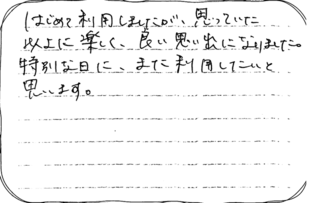 はじめて利用しましたが、思っていた
以上に楽しく、良い思い出になりました。
特別な日に、また利用したいと
思います。